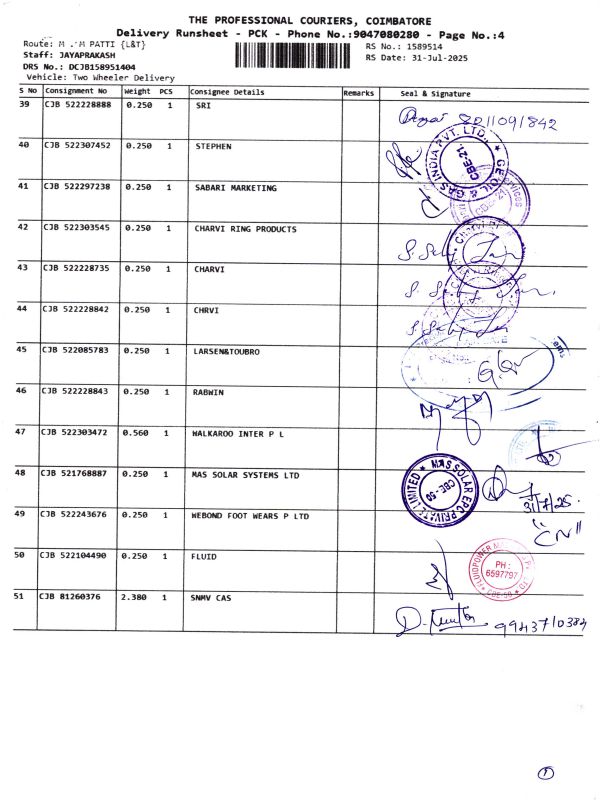 THE PROFESSIONAL COURIERS, COIMBATORE
Delivery Runsheet - PCK - Phone No.:9047080280 - Page No.:4
Route: M . M PATTI {L&T}
RS No.: 1589514
Staff: JAYAPRAKASH
RS Date: 31-Jul-2025
DRS No.: DCJB158951404
Vehicle: Two Wheeler Delivery
S No Consignment No Weight PCS Consignee Details Remarks Seal & Signature
39 CJB 522228888 0.250 1 SRI
8211091842
40 CJB 522307452 0.250 1 STEPHEN
GE OIL & GAS INDIA PVT. LTD., ★ CBE-21
41 CJB 522297238 0.250 1 SABARI MARKETING
42 CJB 522303545 0.250 1 CHARVI RING PRODUCTS
CHARVI
43 CJB 522228735 0.250 1 CHARVI
44 CJB 522228842 0.250 1 CHRVI
45 CJB 522085783 0.250 1 LARSEN&TOUBRO
46 CJB 522228843 0.250 1 RABWIN
47 CJB 522303472 0.560 1 WALKAROO INTER P L
48 CJB 521768887 0.250 1 MAS SOLAR SYSTEMS LTD
MAS SOLAR EPC PRIVATE LIMITED ★ CBE - 50
31/7/25.
49 CJB 522243676 0.250 1 WEBOND FOOT WEARS P LTD
"CN"
50 CJB 522104490 0.250 1 FLUID
FLUIDPOWER
PH :
6597797
CBE-50
51 CJB 81260376 2.380 1 SNMV CAS
9943710384
1